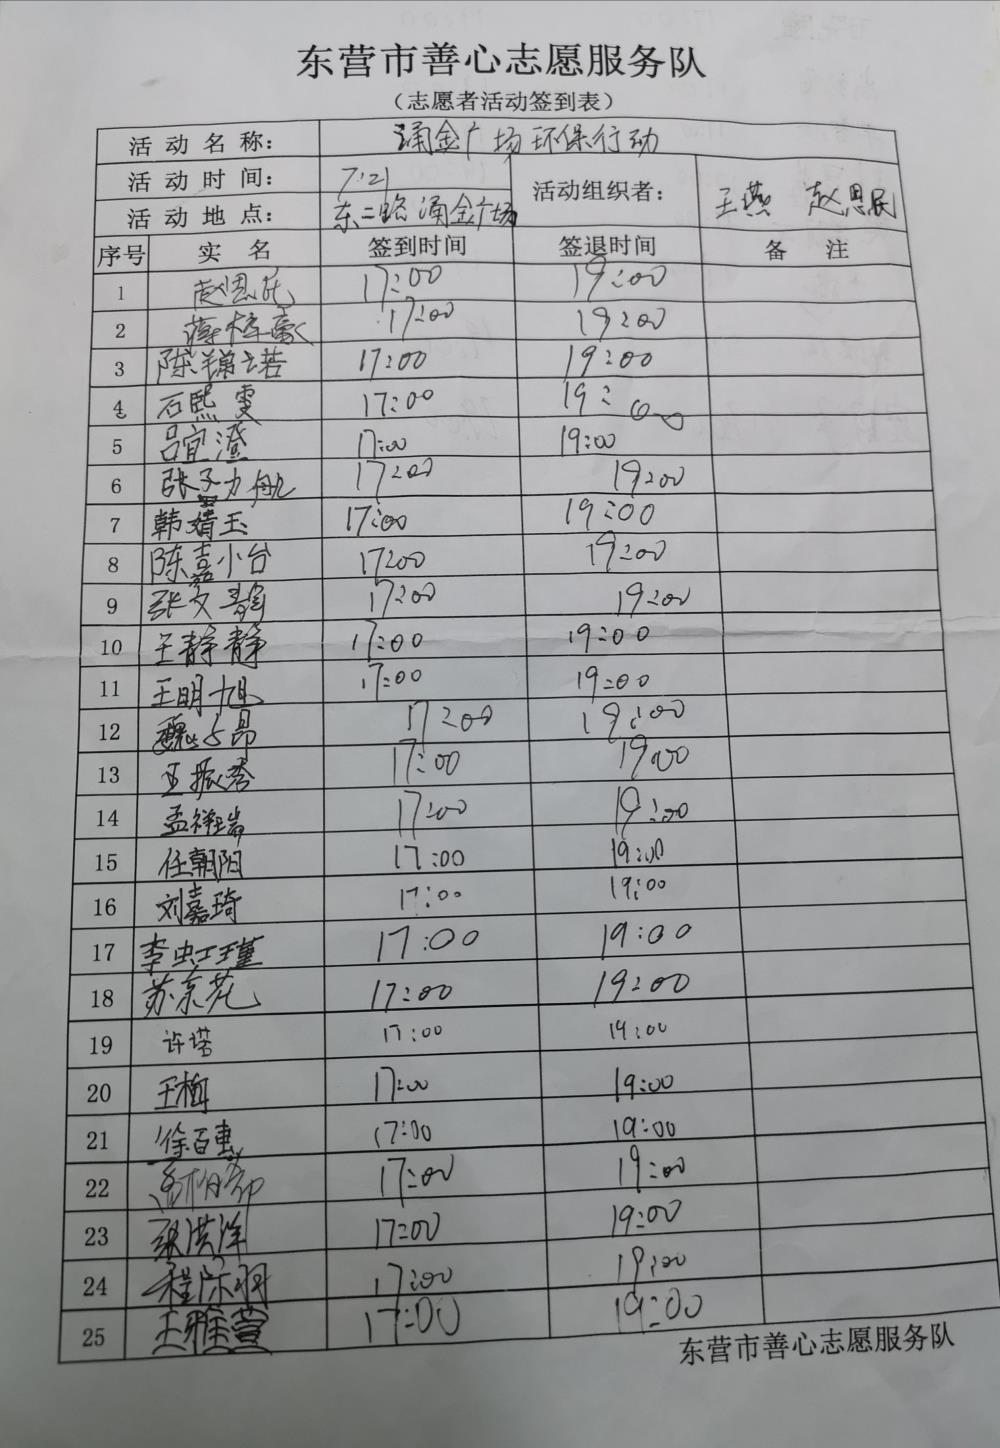 东营市善心志愿服务队
（志愿者活动签到表）
活动名称： 涌金广场环保行动
活动时间： 7.21 活动组织者： 王燕 赵恩民
活动地点： 东二路涌金广场
序号 实名 签到时间 签退时间 备注
1 17:00 19:00
2 17:00 19:00
3 陈锦若 17:00 19:00
4 石熙雯 17:00 19:00
5 吕宜澄 17:00 19:00
6 张子力航 17:00 19:00
7 韩婧玉 17:00 19:00
8 陈嘉小台 17:00 19:00
9 张文韵 17:00 19:00
10 王静静 17:00 19:00
11 王明旭 17:00 19:00
12 17:00 19:00
13 王振秀 17:00 19:00
14 孟祥瑞 17:00 19:00
15 任朝阳 17:00 19:00
16 刘嘉琦 17:00 19:00
17 李虹瑾 17:00 19:00
18 苏东花 17:00 19:00
19 许塔 17:00 19:00
20 王梅 17:00 19:00
21 徐百惠 17:00 19:00
22 17:00 19:00
23 张洪洋 17:00 19:00
24 程陈羽 17:00 19:00
25 王雅萱 17:00 19:00
东营市善心志愿服务队